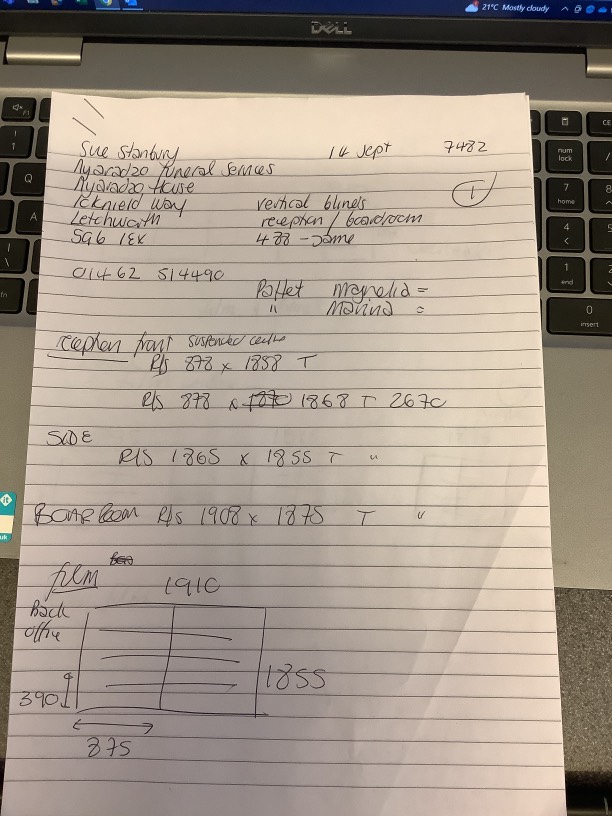 21°C Mostly cloudy
DELL
Sue Stanbury 14 Sept 7482
Nyaradzo funeral Services
Nyaradzo House 1
Icknield Way vertical blinds
Letchworth reception / boardroom
SG6 1EX 488 - Dame
01462 514490
Magnolia =
" Marina =
reception front suspended
R/S 878 x 1858 T
R/S 878 x 1870 1868 T 2670
SIDE
R/S 1865 x 1855 T "
Board Room R/S 1908 x 1875 T "
film
1910
Back
office
1855
390
875
num
lock
7
home
8
4
1
end
0
insert
Q
A